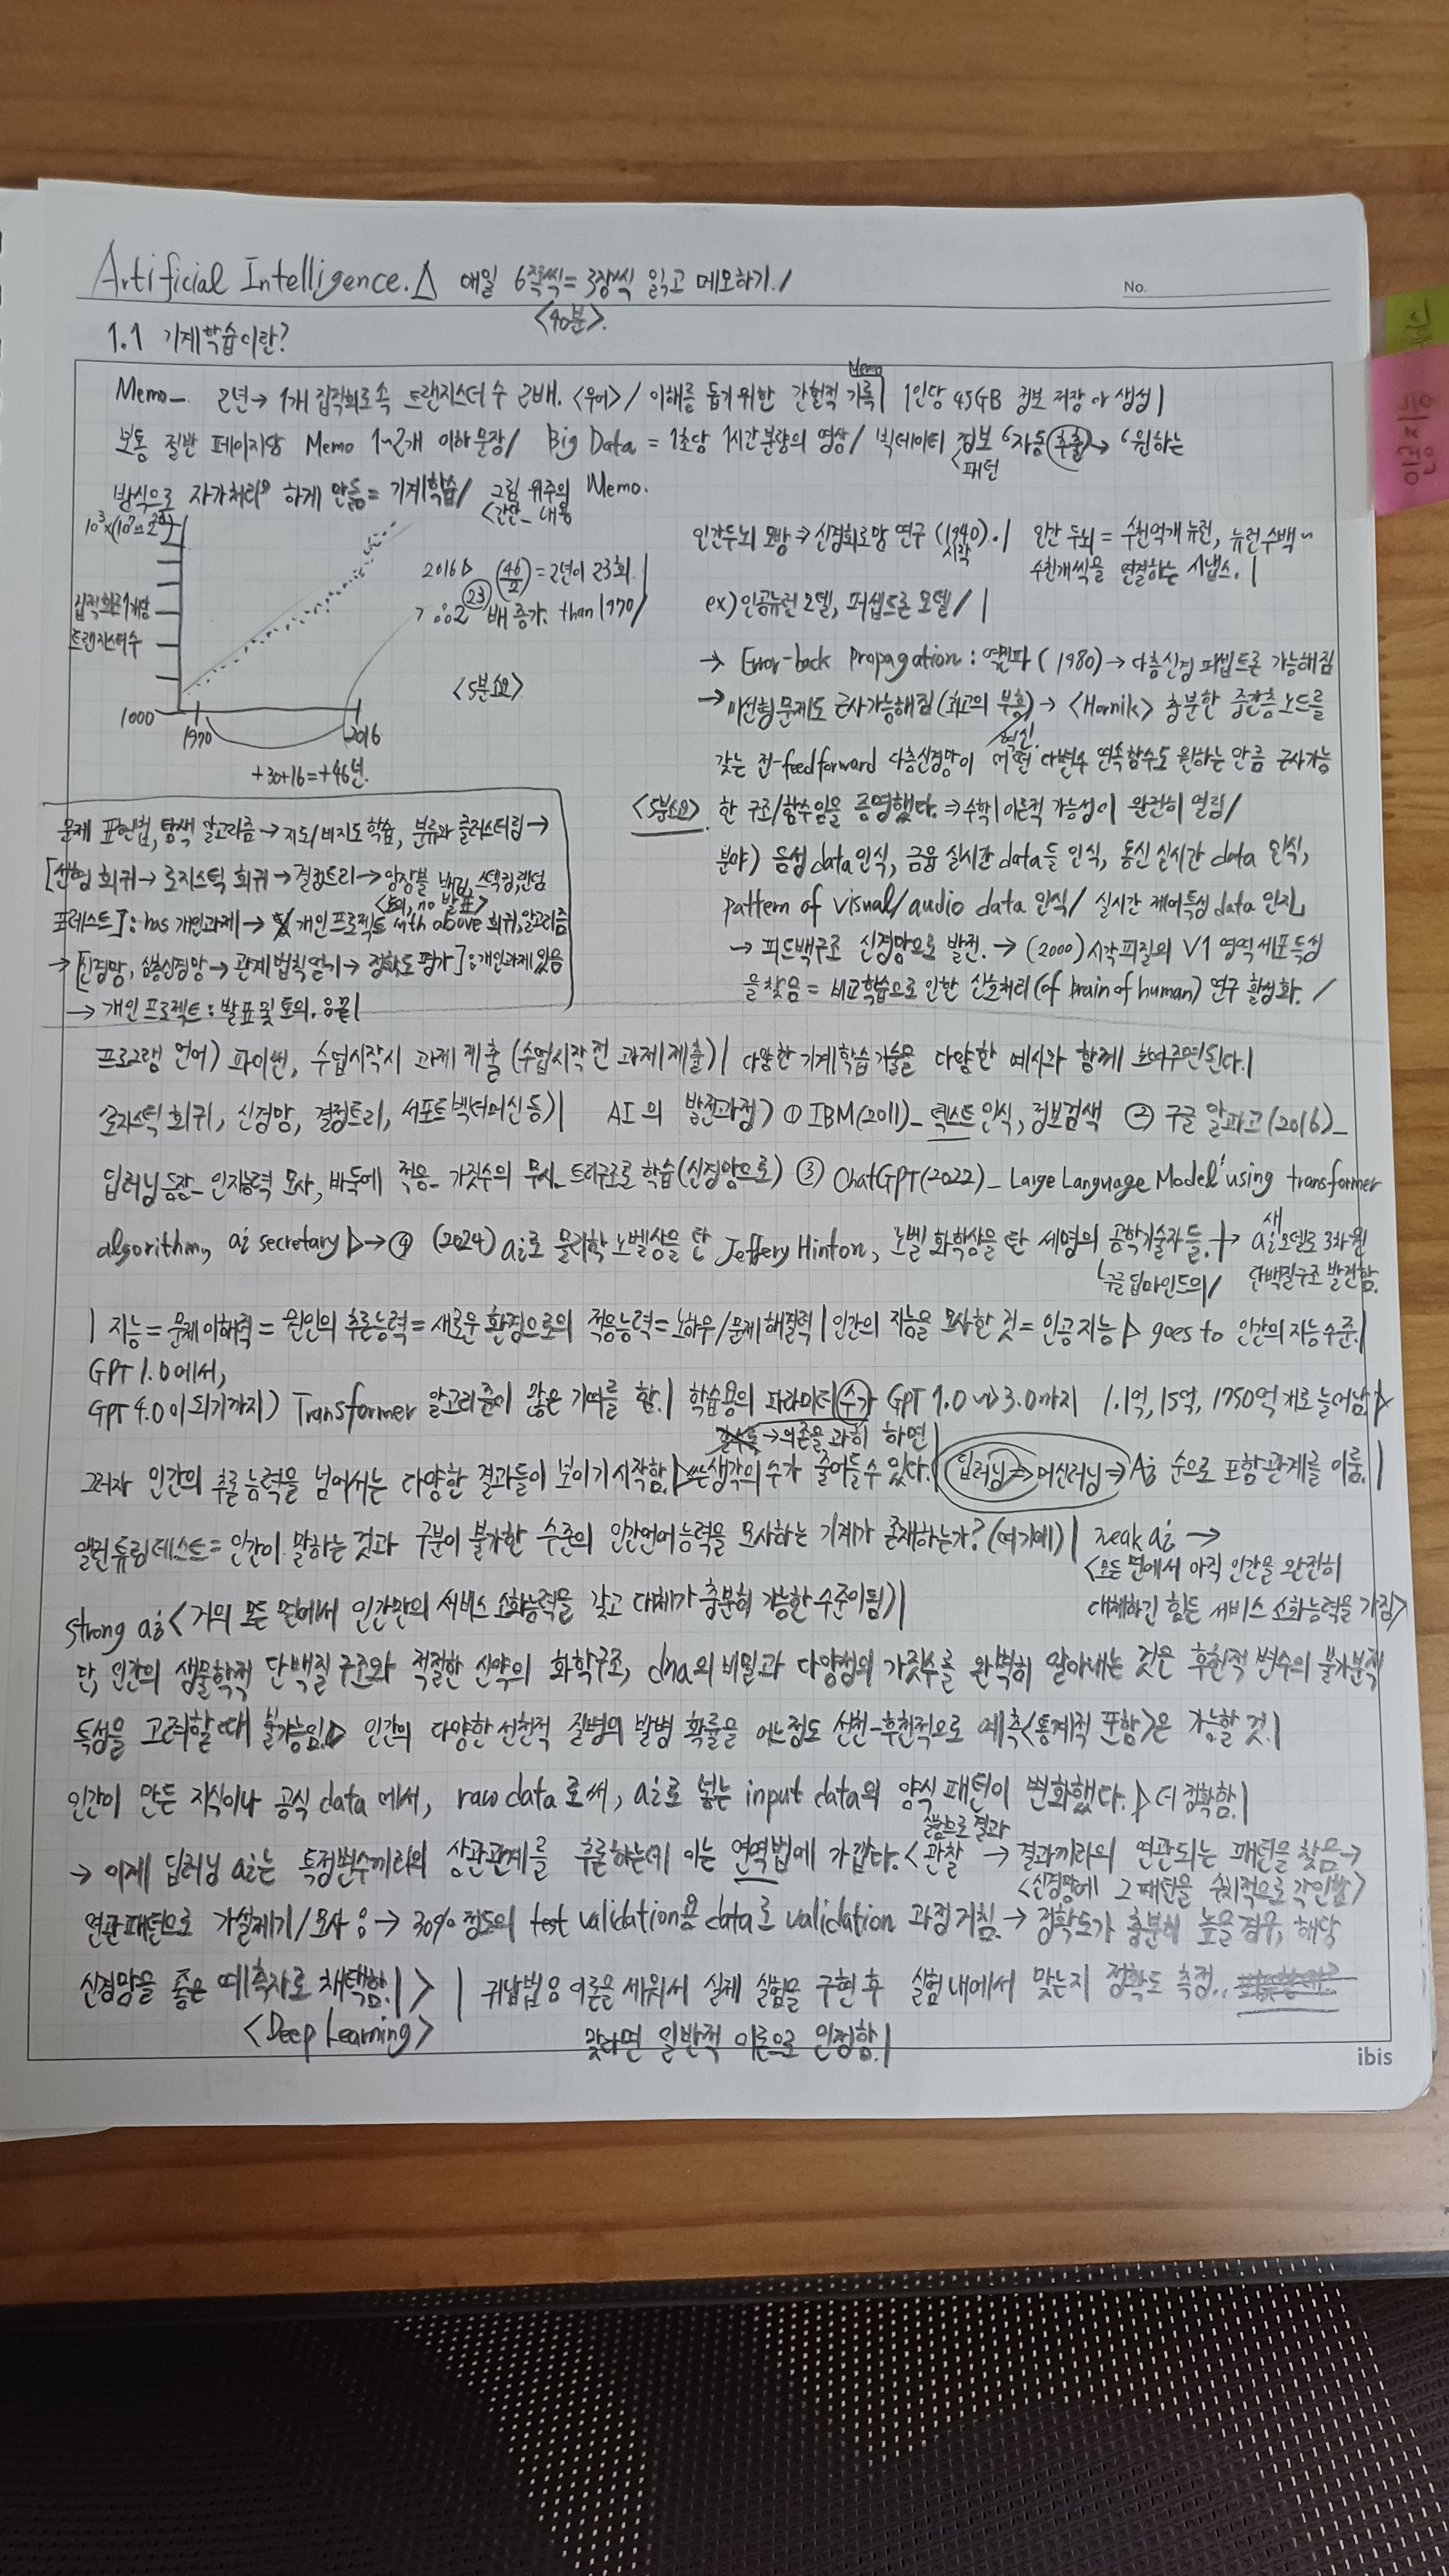 Artificial Intelligence. △ 매일 6쪽씩=3장씩 읽고 메모하기./
<40분>.
No.
1.1 기계학습이란?
Memo
Memo_ 2년→ 1개 집적회로속 트랜지스터 수 2배. <무어>/ 이해를 돕기위한 간헐적 기록| 1인당 45GB 정보 저장 or 생성|
보통 절반 페이지당 Memo 1~2개 이하 문장/ Big Data = 1초당 1시간 분량의 영상/ 빅데이터 정보 자동 추출→ 원하는
<패턴
방식으로 자가처리 하게 만듦= 기계학습/ 그림 위주의 Memo.
<간단_내용
집적회로 1개당
트랜지스터수
1000
1970
2016
+30+16=+46년.
2016▷ (46/2)=2년이 23회.|
23
∴2 배 증가. than 1970/
<5분소요>
인간두뇌 모방 ⇒ 신경회로망 연구 (1940).| 인간 두뇌 = 수천억개 뉴런, 뉴런 수백~
시작
수천개씩을 연결하는 시냅스.|
ex) 인공뉴런 모델, 퍼셉트론 모델/ |
→ Error-back Propagation: 역전파 (1980) → 다층신경 퍼셉트론 가능해짐
→ 비선형문제도 근사가능해짐 (최고의 부흥) → <Hornik> 충분한 중간층 노드를
혁신!
갖는 전-feedforward 다층신경망이 어떤 다변수 연속함수도 원하는 만큼 근사가능
<5분소요> 한 구조/함수임을 증명했다. ⇒ 수학 이론적 가능성이 완전히 열림/
분야) 음성 data 인식, 금융 실시간 data들 인식, 통신 실시간 data 인식,
pattern of visual/audio data 인식/ 실시간 제어특성 data 인지,
→ 피드백구조 신경망으로 발전. → (2000) 시각피질의 V1 영역 세포 특성
을 찾음 = 비교학습으로 인한 신호처리 (of brain of human) 연구 활성화. /
문제 표현법, 탐색 알고리즘 → 지도/비지도 학습, 분류와 클러스터링 →
[선형 회귀 → 로지스틱 회귀 → 결정트리 → 앙상블 배깅, 스택킹, 랜덤
<토의, no 발표>
포레스트]: has 개인과제| → 개인 프로젝트 with above 회귀, 알고리즘
→ [신경망, 심층신경망 → 관계 법칙 얻기 → 정확도 평가]: 개인과제 있음
→ 개인 프로젝트: 발표 및 토의. 끝|
프로그램 언어) 파이썬, 수업시작시 과제 제출 (수업시작 전 과제 제출)| 다양한 기계학습 기술을 다양한 예시와 함께 보여주면 된다.|
로지스틱 회귀, 신경망, 결정트리, 서포트벡터머신 등)| AI의 발전과정) ① IBM(2011)_ 텍스트 인식, 정보검색 ② 구글 알파고 (2016)_
딥러닝 등장_ 인지능력 모사, 바둑에 적용_ 가짓수의 무시_ 트리구조로 학습 (신경망으로) ③ ChatGPT(2022)_ Large Language Model using transformer
algorithm, ai secretary ▷→ ④ (2024) ai로 물리학 노벨상을 탄 Jeffery Hinton, 노벨 화학상을 탄 세명의 공학기술자들. → 새 ai 모델로 3차원
구글 딥마인드의/ 단백질구조 발견함.
| 지능= 문제 이해력 = 원인의 추론능력 = 새로운 환경으로의 적응능력 = 노하우/문제 해결력 | 인간의 지능을 모사한 것 = 인공지능 ▷ goes to 인간의 지능 수준.|
GPT 1.0에서,
GPT 4.0이 되기까지) Transformer 알고리즘이 많은 기여를 함.| 학습용의 파라미터 수가 GPT 1.0 ~ 3.0까지 1.1억, 15억, 1750억 개로 늘어남.▷
→ 의존을 과히 하면|
그러자 인간의 추론능력을 넘어서는 다양한 결과들이 보이기 시작함.▷ 생각의 수가 줄어들 수 있다.| 딥러닝 ⇒ 머신러닝 ⇒ Ai 순으로 포함관계를 이룸.|
앨런 튜링 테스트= 인간이 말하는 것과 구분이 불가한 수준의 인간언어능력을 모사하는 기계가 존재하는가? (여기에) | weak ai →
<모든 면에서 아직 인간을 완전히
strong ai < 거의 모든 면에서 인간만의 서비스 소화능력을 갖고 대체가 충분히 가능한 수준이 됨)| 대체하긴 힘든 서비스 소화능력을 가짐>
단, 인간의 생물학적 단백질 구조와 적절한 신약의 화학구조, dna의 비밀과 다양성의 가짓수를 완벽히 알아내는 것은 후천적 변수의 불가분적
특성을 고려할 때 불가능임.▷ 인간의 다양한 선천적 질병의 발병 확률을 어느정도 선천-후천적으로 예측<통계적 포함>은 가능할 것.|
인간이 만든 지식이나 공식 data 에서, raw data 로써, ai로 넣는 input data의 양식 패턴이 변화했다.▷ 더 정확함.|
실험으로 결과
→ 이제 딥러닝 ai는 특정변수끼리의 상관관계를 추론하는데 이는 연역법에 가깝다. < 관찰 → 결과끼리의 연관되는 패턴을 찾음 →
<신경망에 그 패턴을 수치적으로 각인함>
연관패턴으로 가설제기/모사 → 30% 정도의 test validation용 data로 validation 과정 거침. → 정확도가 충분히 높을 경우, 해당
신경망을 좋은 예측자로 채택함.|> | 귀납법은 이론을 세워서 실제 실험을 구현 후 실험 내에서 맞는지 정확도 측정..
<Deep Learning> 맞다면 일반적 이론으로 인정함.|
ibis
인공지능